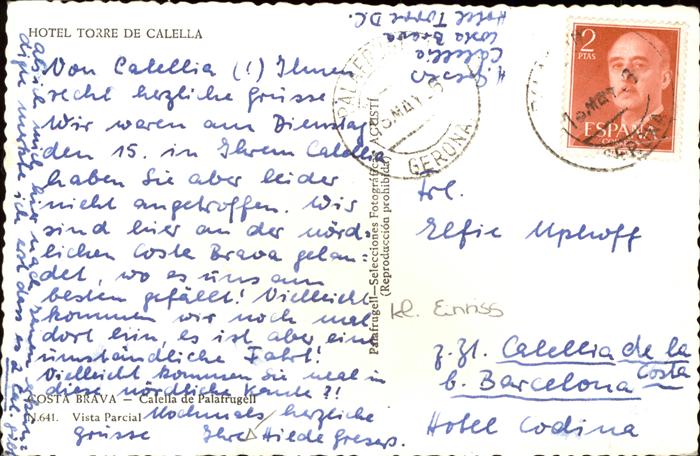 HOTEL TORRE DE CALELLA
Von Calellia (!) Ihnen
recht herzliche Grüsse
Wir waren am Dienstag
den 15. in Ihrem Calellia
haben Sie aber leider
nicht angetroffen. Wir
sind hier an der nörd-
lichen Costa Brava gelan-
det, wo es uns am
besten gefällt! Vielleicht
kommen wir noch mal
dort hin, es ist aber eine
umständliche Fahrt!
Vielleicht kommen Sie mal in
diese nördliche Kante?!
COSTA BRAVA - Calella de Palafrugell
N.641. Vista Parcial
Nochmals herzliche
Grüsse Ihre Hilde Gresers.
als ich mich hier nach Ihnen
merkte ich erst dass es 2
Palafrugell—Selecciones Fotográficas AGUSTÍ
(Reproducción prohibida)
H. Gresers
Calellia
Costa Brava
Hotel Torre D.C.
GERONA
2
PTAS
ESPAÑA
CORREOS
Frl.
Elfie Uphoff
kl. Einriss
z. Zt. Calellia de la
Costa
b. Barcelona
Hotel Codina